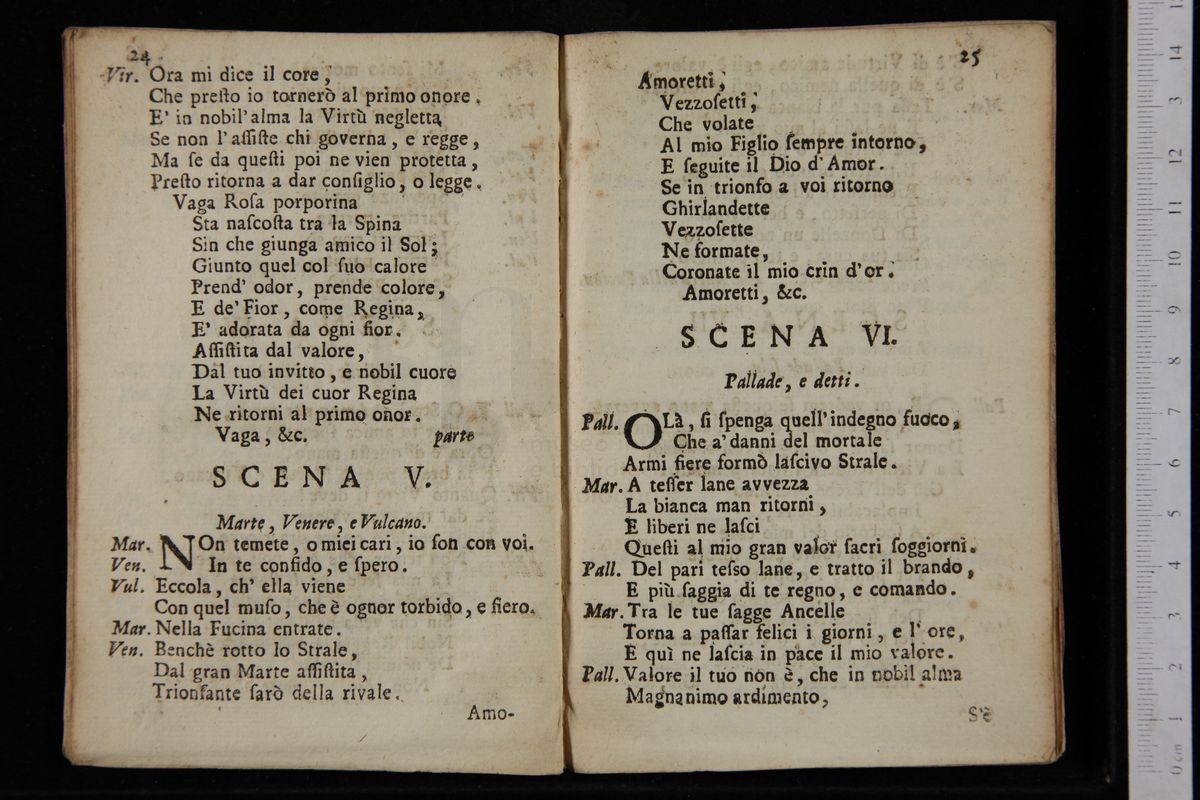 24
Vir. Ora mi dice il core,
Che preſto io tornerò al primo onore.
E' in nobil'alma la Virtù negletta
Se non l'aſſiſte chi governa, e regge,
Ma ſe da queſti poi ne vien protetta,
Preſto ritorna a dar conſiglio, o legge.
Vaga Roſa porporina
Sta naſcoſta tra la Spina
Sin che giunga amico il Sol;
Giunto quel col ſuo calore
Prend' odor, prende colore,
E de' Fior, come Regina,
E' adorata da ogni fior.
Aſſiſtita dal valore,
Dal tuo invitto, e nobil cuore
La Virtù dei cuor Regina
Ne ritorni al primo onor.
Vaga, &c. parte
SCENA V.
Marte, Venere, e Vulcano.
Mar. NOn temete, o miei cari, io ſon con voi.
Ven. In te confido, e ſpero.
Vul. Eccola, ch' ella viene
Con quel muſo, che è ognor torbido, e fiero.
Mar. Nella Fucina entrate.
Ven. Benchè rotto lo Strale,
Dal gran Marte aſſiſtita,
Trionfante ſarò della rivale.
Amo-
25
Amoretti,
Vezzoſetti,
Che volate
Al mio Figlio ſempre intorno,
E ſeguite il Dio d' Amor.
Se in trionfo a voi ritorno
Ghirlandette
Vezzoſette
Ne formate,
Coronate il mio crin d'or.
Amoretti, &c.
SCENA VI.
Pallade, e detti.
Pall. OLà, ſi ſpenga quell'indegno fuoco,
Che a' danni del mortale
Armi fiere formò laſcivo Strale.
Mar. A teſſer lane avvezza
La bianca man ritorni,
E liberi ne laſci
Queſti al mio gran valor ſacri ſoggiorni.
Pall. Del pari teſso lane, e tratto il brando,
E più ſaggia di te regno, e comando.
Mar. Tra le tue ſagge Ancelle
Torna a paſſar felici i giorni, e l' ore,
E quì ne laſcia in pace il mio valore.
Pall. Valore il tuo non è, che in nobil alma
Magnanimo ardimento,
S'è